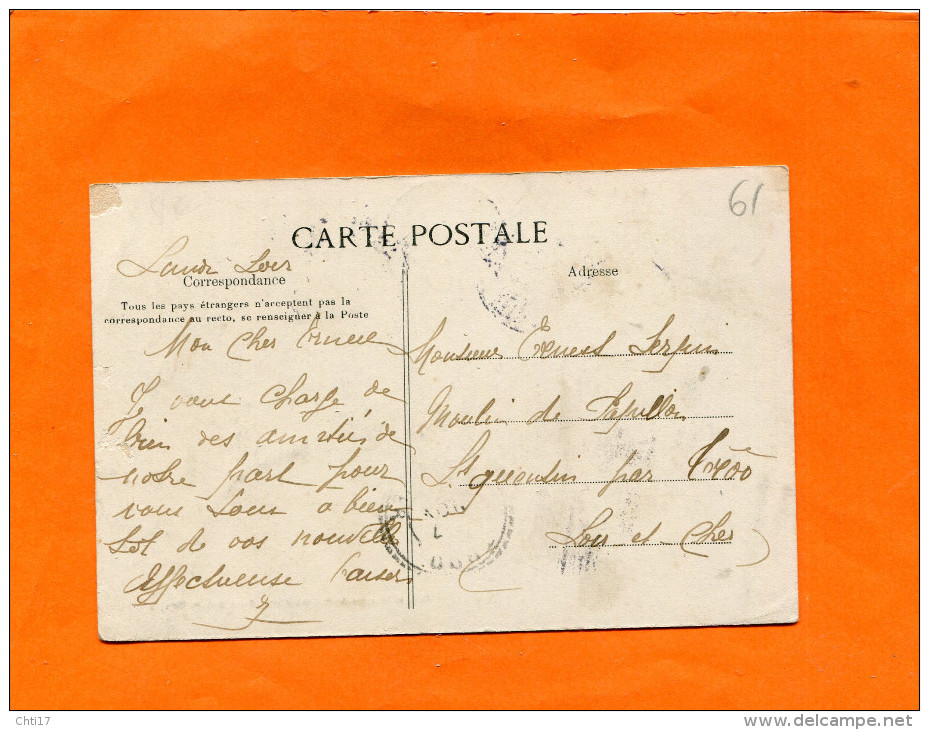 61
CARTE POSTALE
Lundi Soir
Correspondance
Tous les pays étrangers n'acceptent pas la
correspondance au recto, se renseigner à la Poste
Mon Cher
Je vous charge de
bien des amitiés de
notre part pour
vous tous a bien
tot de vos nouvelle
Affectueuse baisers
Adresse
Monsieur Ernest
Moulin de Papillon
St quentin par Troo
Loir et Cher
Chti17
www.delcampe.net